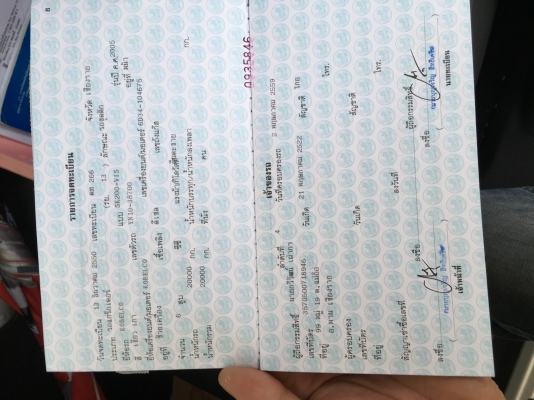 8
รายการจดทะเบียน
วันจดทะเบียน 13 ธันวาคม 2550 เลขทะเบียน ตค 206 จังหวัด เชียงราย
ประเภท รถแทร็กเตอร์ (รย. 13 ) ลักษณะ รถขุดตัก
ยี่ห้อรถ KOBELCO แบบ SK200-VIS รุ่นปี ค.ศ.2005
สี เขียว เทา เลขตัวรถ YN10-38700 อยู่ที่
ยี่ห้อเครื่องยนต์/มอเตอร์ KOBELCO เลขเครื่องยนต์/มอเตอร์ 6D34-104675
อยู่ที่ เชื้อเพลิง ดีเซล เลขถังแก๊ส
จำนวน 6 สูบ ซีซี แรงม้า/กิโลวัตต์
น้ำหนักรถ 20000 กก. น้ำหนักบรรทุก/น้ำหนักลงเพลา กก.
น้ำหนักรวม 20000 กก. ที่นั่ง คน
0935846
เจ้าของรถ
ลำดับที่ 4 วันที่ครอบครองรถ 2 พฤษภาคม 2559
ผู้ถือกรรมสิทธิ์
เลขที่บัตร 3570500718946 วันเกิด 21 พฤษภาคม 2522 สัญชาติ ไทย
ที่อยู่ 99 หมู่ 19 ต.แม่อ้อ
อ.พาน เชียงราย โทร.
ผู้ครอบครอง
เลขที่บัตร วันเกิด สัญชาติ
ที่อยู่ โทร.
สัญญาเช่าซื้อเลขที่ ลงวันที่ ผู้ถือกรรมสิทธิ์
ลงชื่อ ลงชื่อ
เจ้าหน้าที่ นายทะเบียน